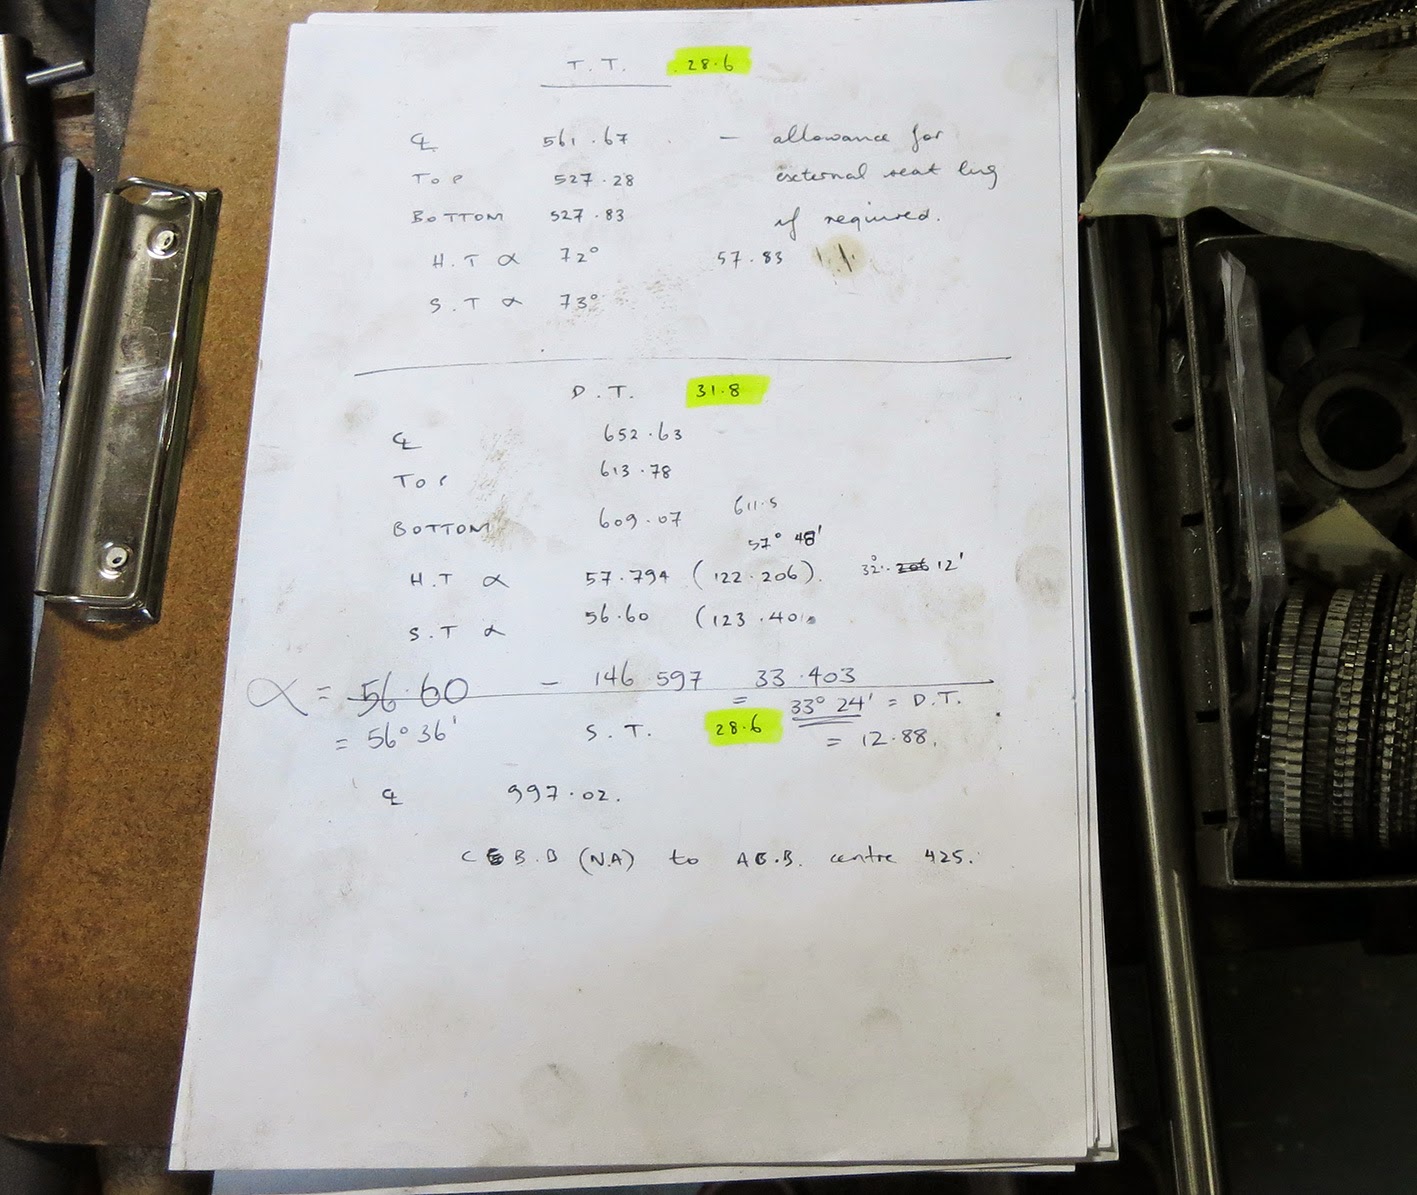 T. T. 28.6
℄ 561.67 — allowance for
TOP 527.28 external seat lug
BOTTOM 527.83 if required.
H.T α 72° 57.83
S.T α 73°
D.T. 31.8
℄ 652.63
TOP 613.78
BOTTOM 609.07 611.5
57° 48'
H.T α 57.794 (122.206). 32°. 206 12'
S.T α 56.60 (123.40
α = 56.60 – 146 597 33.403
= 56° 36' = 33° 24' = D.T.
S.T. 28.6 = 12.88.
℄ 997.02.
B.B (N.A) to centre 425.